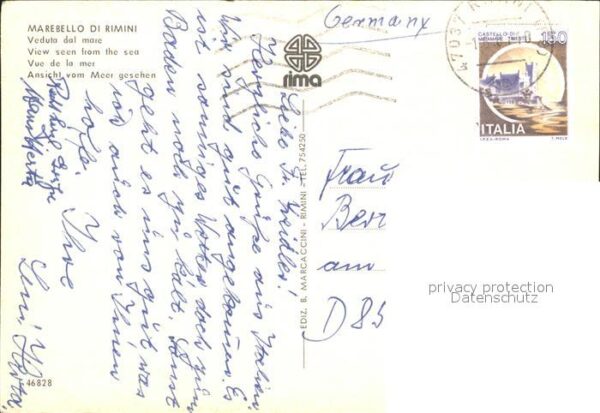 MAREBELLO DI RIMINI
Veduta dal mare
View seen from the sea
Vue de la mer
Ansicht vom Meer gesehen
Germany
rima
Liebe Fr.
Herzliche Grüße aus Italien.
Wir sind gut angekommen. Es
ist sonniges Wetter doch zum
Baden noch zu kalt. Sonst
geht es uns gut was
ich auch von Ihnen
hoffe.
Ihre
EDIZ. B. MARCACCINI - RIMINI - TEL. 754250
46828
CASTELLO DI
MIRAMARE TRIESTE
150
ITALIA
I.P.Z.S.-ROMA
47037
Frau
am
D 85
privacy protection
Datenschutz